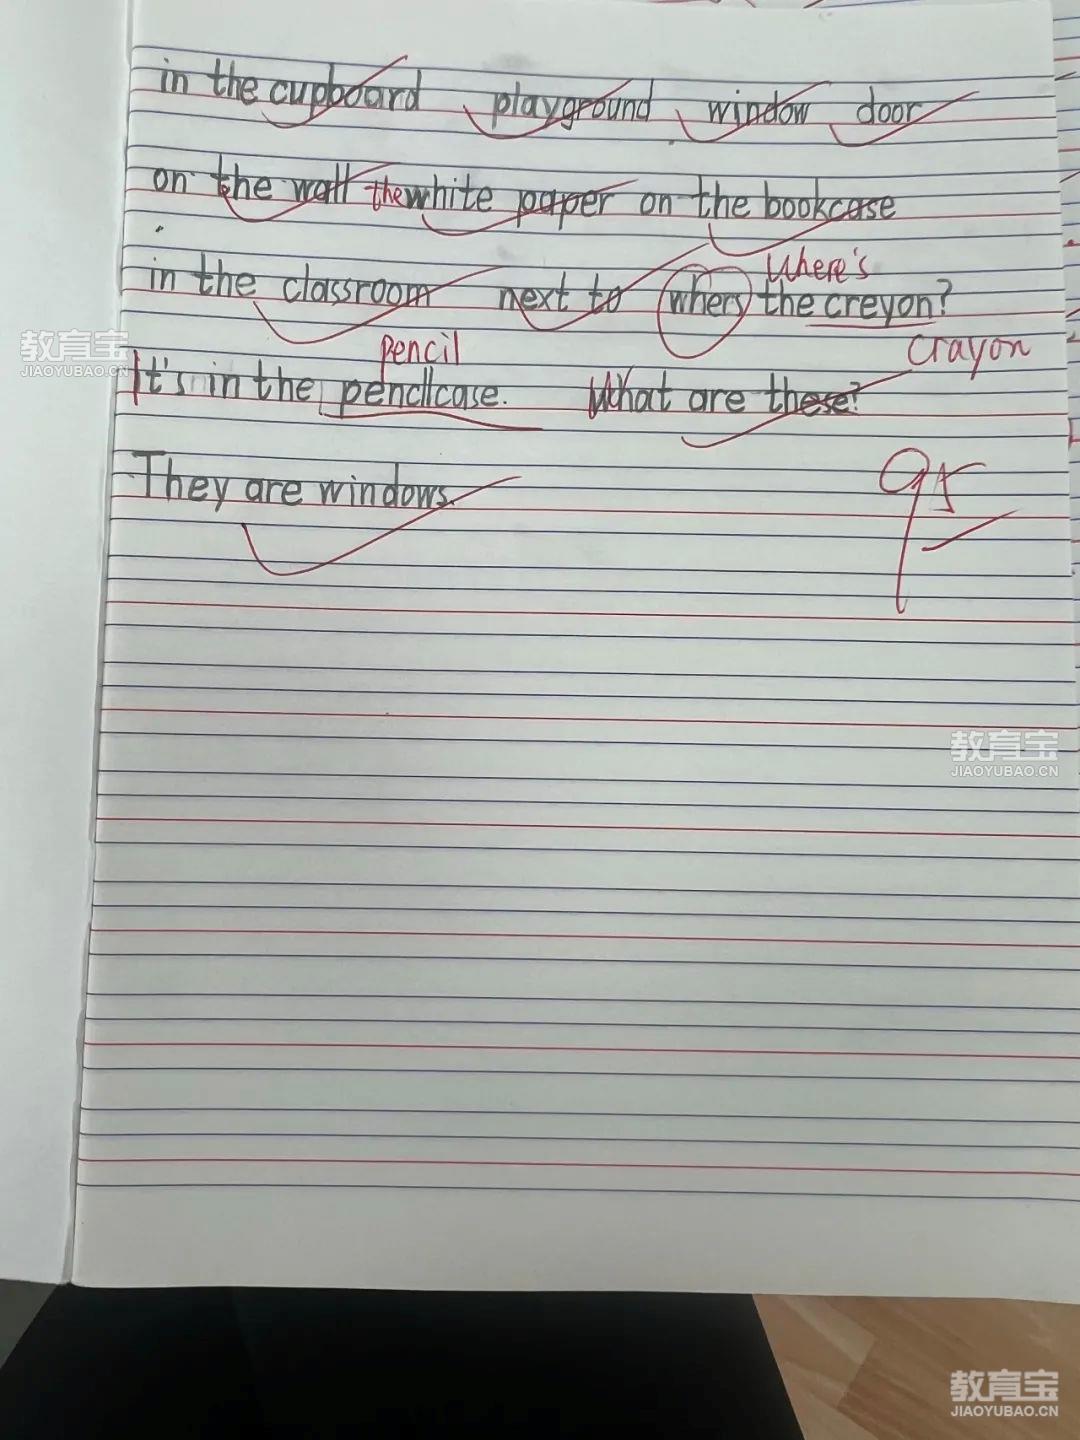 in the cupboard playground window door
on the wall the white paper on the bookcase
Where's
in the classroom next to whers the creyon?
教育宝
JIAOYUBAO.CN
pencil crayon
It's in the pencllcase. What are these?
They are windows.
95
教育宝
JIAOYUBAO.CN
教育宝
JIAOYUBAO.CN